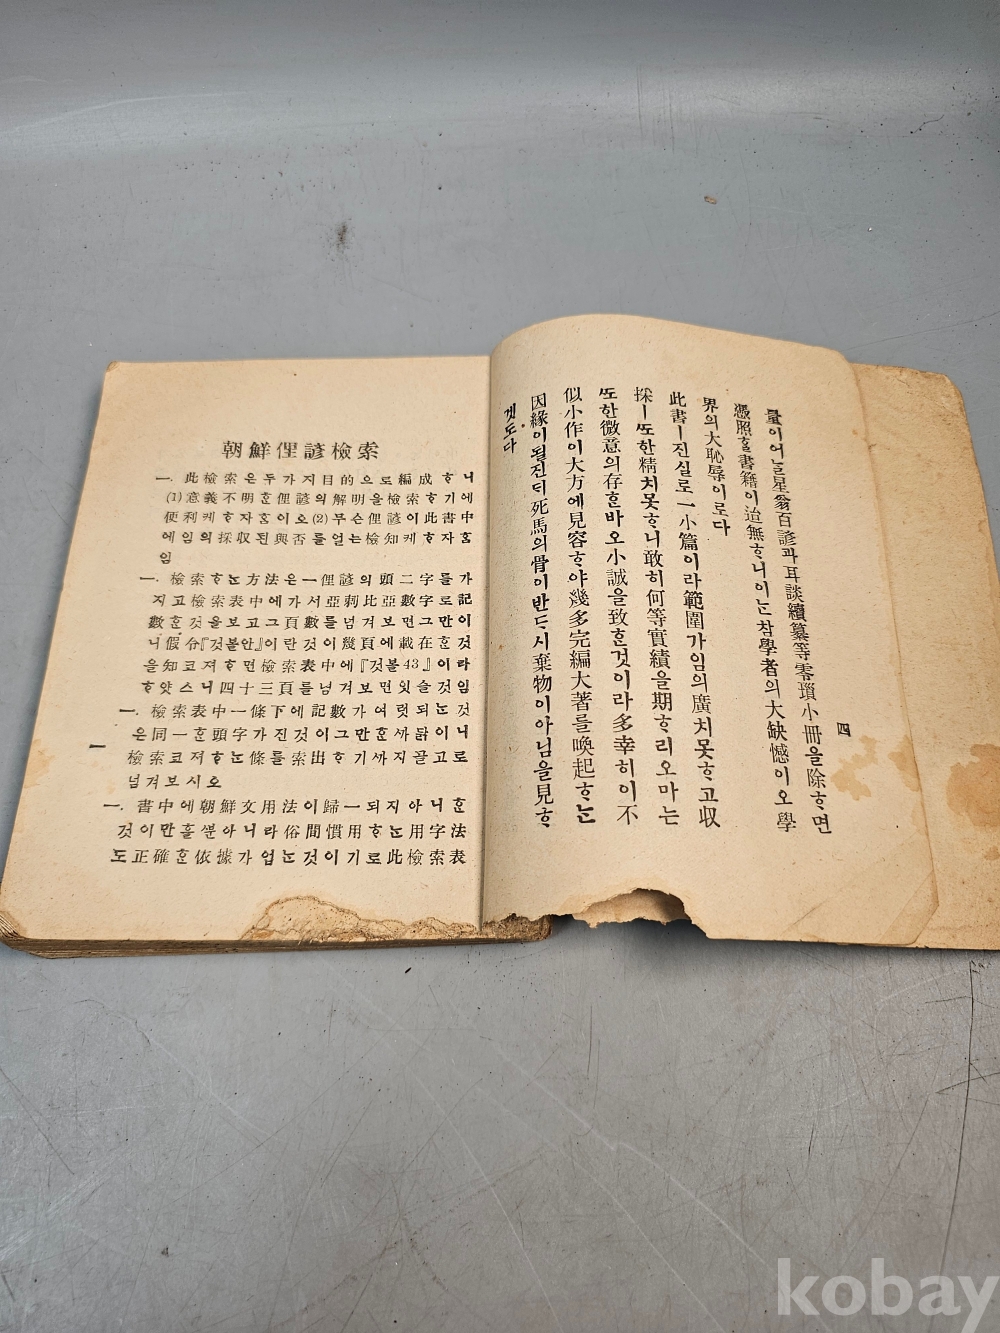 量이어늘星翁百諺과耳談續纂等零瑣小冊을除ᄒᆞ면
憑照ᄒᆞᆯ書籍이迨無ᄒᆞ니이ᄂᆞᆫ참學者의大缺憾이오學
界의大恥辱이로다
此書ㅣ진실로一小篇이라範圍가임의廣치못ᄒᆞ고収
採ㅣᄯᅩ한精치못ᄒᆞ니敢히何等實績을期ᄒᆞ리오마는
ᄯᅩ한微意의存ᄒᆞᆫ바오小誠을致ᄒᆞᆫ것이라多幸히이不
似小作이大方에見容ᄒᆞ야幾多完編大著를喚起ᄒᆞᄂᆞᆫ
因緣이될진ᄃᆡ死馬의骨이반ᄃᆞ시棄物이아님을見ᄒᆞ
겟도다
四
朝鮮俚諺檢索
一. 此檢索은두가지目的으로編成ᄒᆞ니
(1)意義不明ᄒᆞᆫ俚諺의解明을檢索ᄒᆞ기에
便利케ᄒᆞ자홈이오(2)무슨俚諺이此書中
에임의採収된與否를얼는檢知케ᄒᆞ자홈
임
一. 檢索ᄒᆞᄂᆞᆫ方法은一俚諺의頭二字를가
지고檢索表中에가서亞剌比亞數字로記
數ᄒᆞᆫ것을보고그頁數를넘겨보면그만이
니假令『것볼안』이란것이幾頁에載在ᄒᆞᆫ것
을知코져ᄒᆞ면檢索表中에『것볼43』이라
ᄒᆞ얏스니四十三頁를넘겨보면잇슬것임
一. 檢索表中一條下에記數가여럿되ᄂᆞᆫ것
은同一ᄒᆞᆫ頭字가진것이그만ᄒᆞᆫ까닭이니
檢索코져ᄒᆞᄂᆞᆫ條를索出ᄒᆞ기ᄭᅡ지골고로
넘겨보시오
一. 書中에朝鮮文用法이歸一되지아니ᄒᆞᆫ
것이만흘ᄲᅮᆫ아니라俗間慣用ᄒᆞᄂᆞᆫ用字法
도正確ᄒᆞᆫ依據가업ᄂᆞᆫ것이기로此檢索表
一
kobay